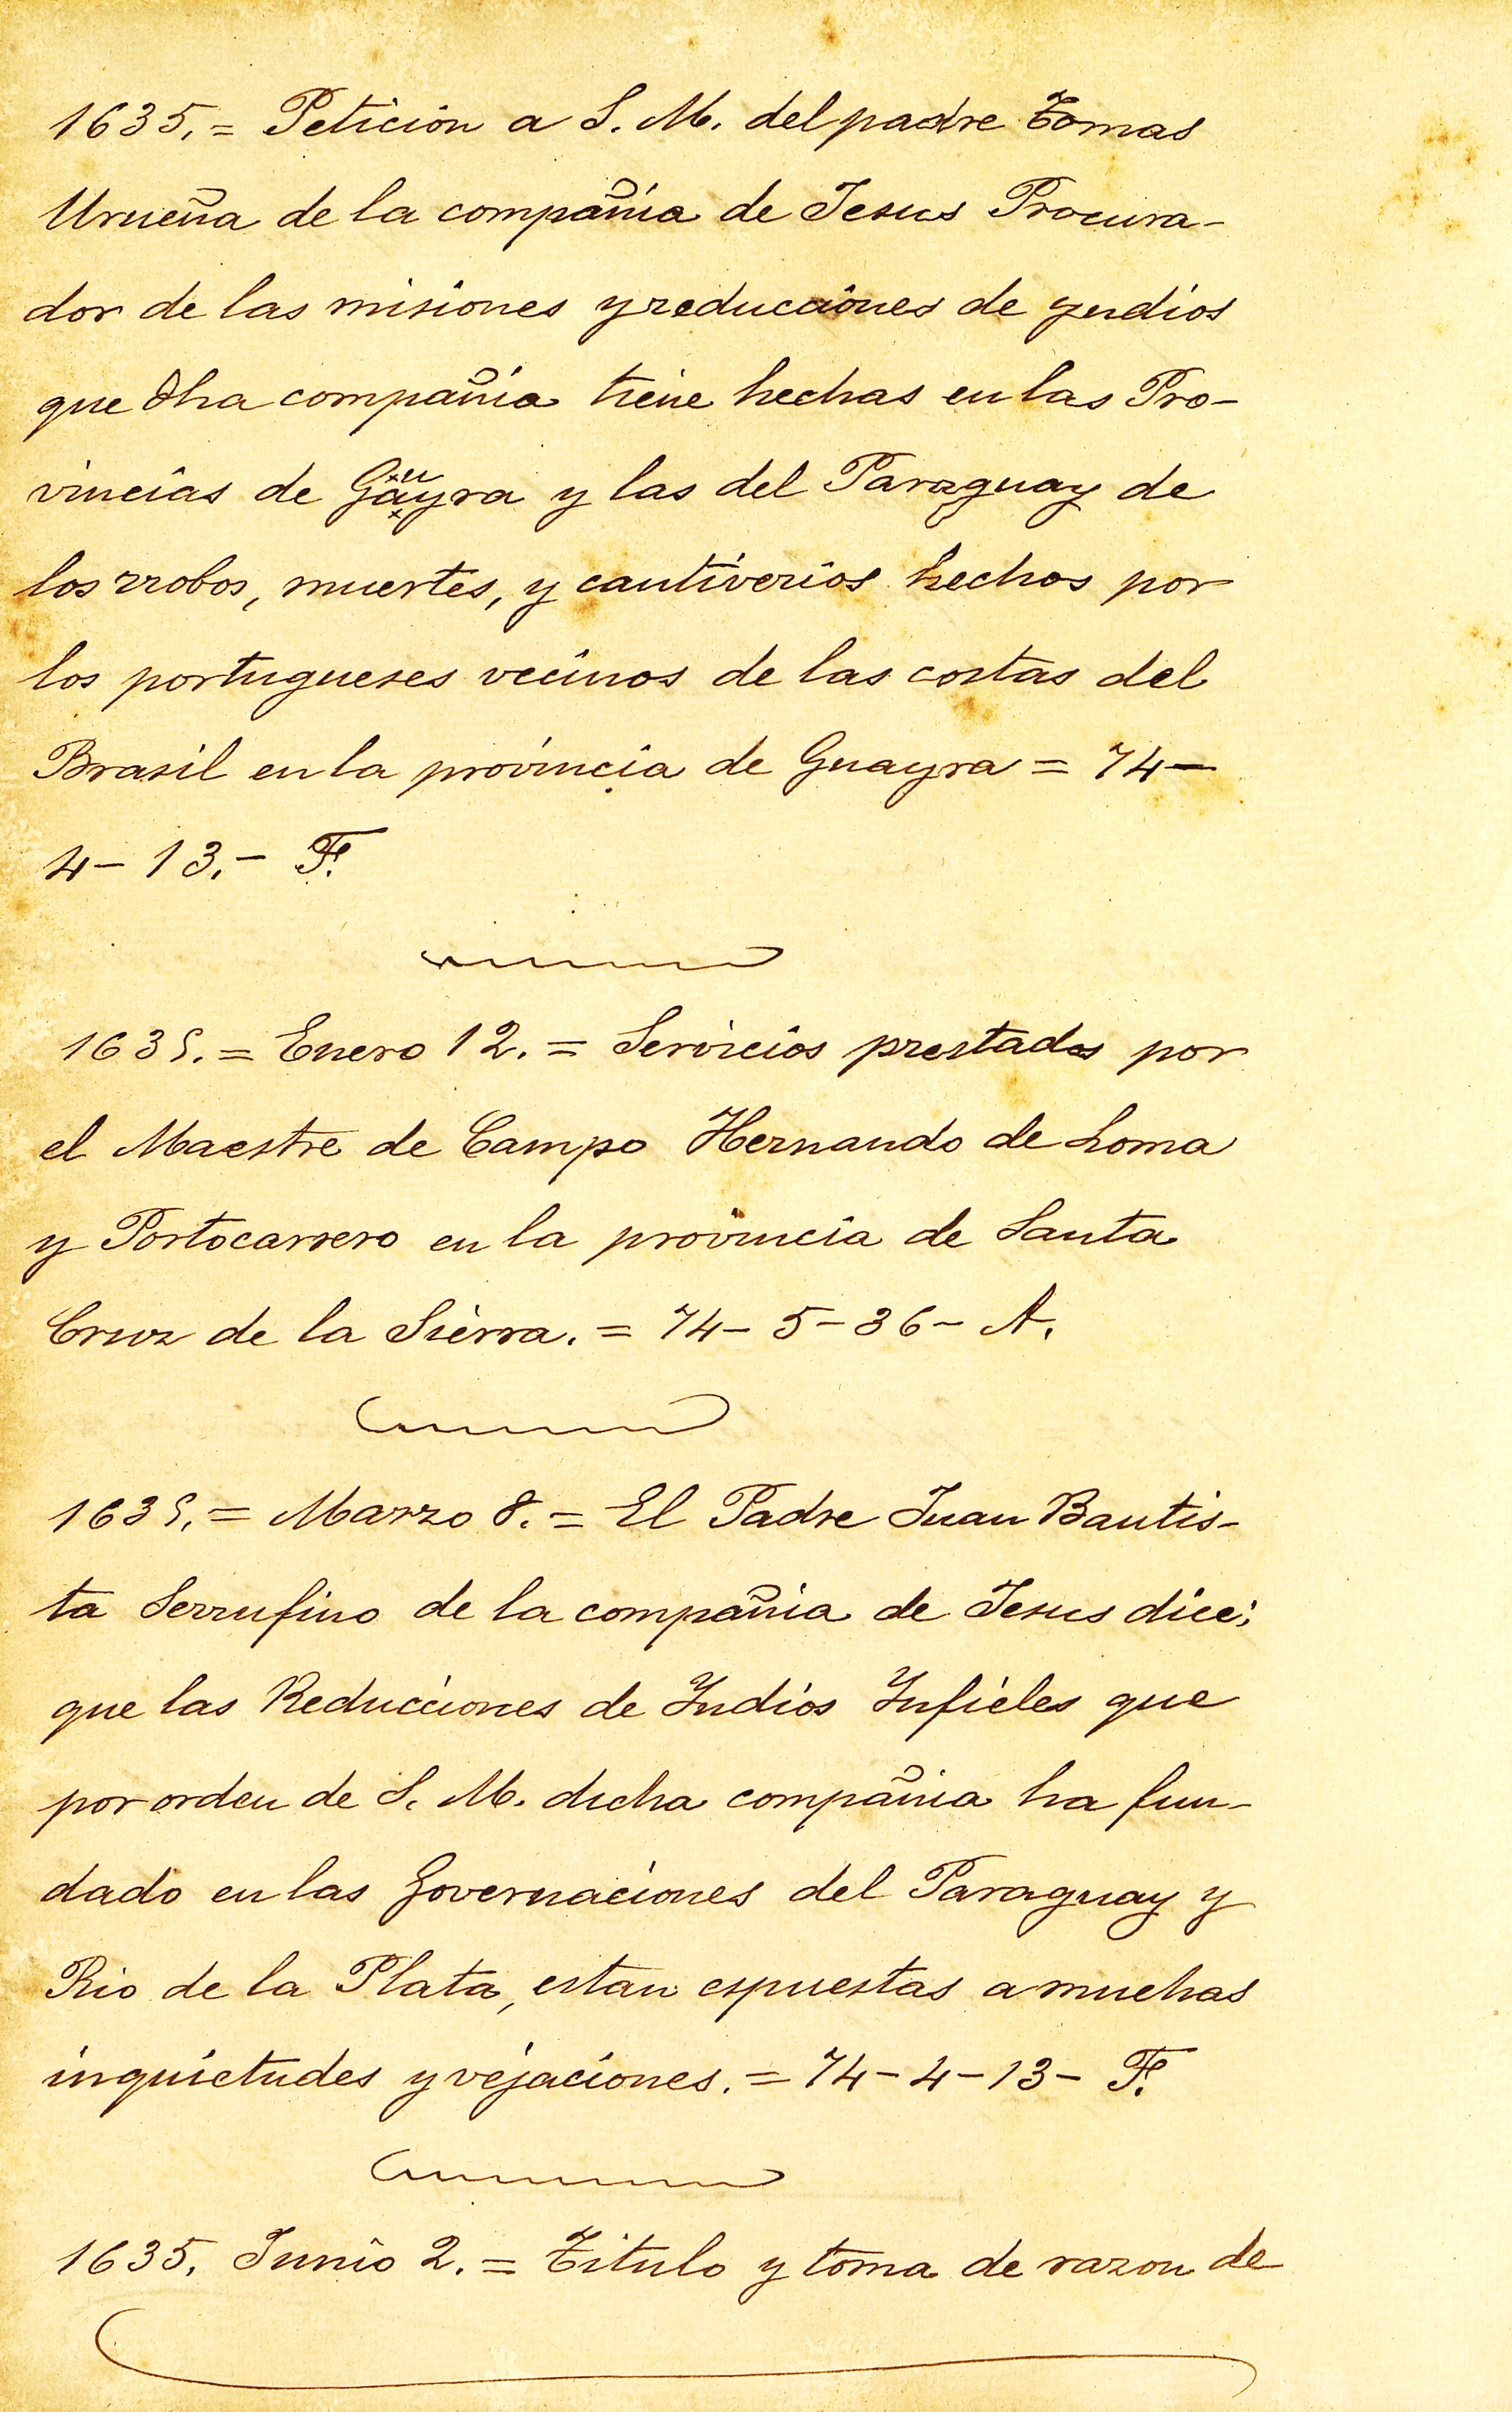 1635. = Peticion a S. M. del padre Tomas
Urueña de la compañia de Jesus Procura-
dor de las misiones y reducciones de yndios
que dha compañia tiene hechas en las Pro-
vincias de Guayra y las del Paraguay de
los rrobos, muertes, y cautiverios hechos por
los portugueses vecinos de las costas del
Brasil en la provincia de Guayra = 74-
4-13.- F.
1635. = Enero 12. = Servicios prestados por
el Maestre de Campo Hernando de Loma
y Portocarrero en la provincia de Santa
Cruz de la Sierra. = 74-5-36- A.
1635. = Marzo 8. = El Padre Juan Bautis-
ta Serrufino de la compañia de Jesus dice;
que las Reducciones de Yndios Ynfieles que
por orden de S. M. dicha compañia ha fun-
dado en las Governaciones del Paraguay y
Rio de la Plata, estan espuestas a muchas
inquietudes y vejaciones. = 74-4-13- F.
1635. Junio 2. = Titulo y toma de razon de